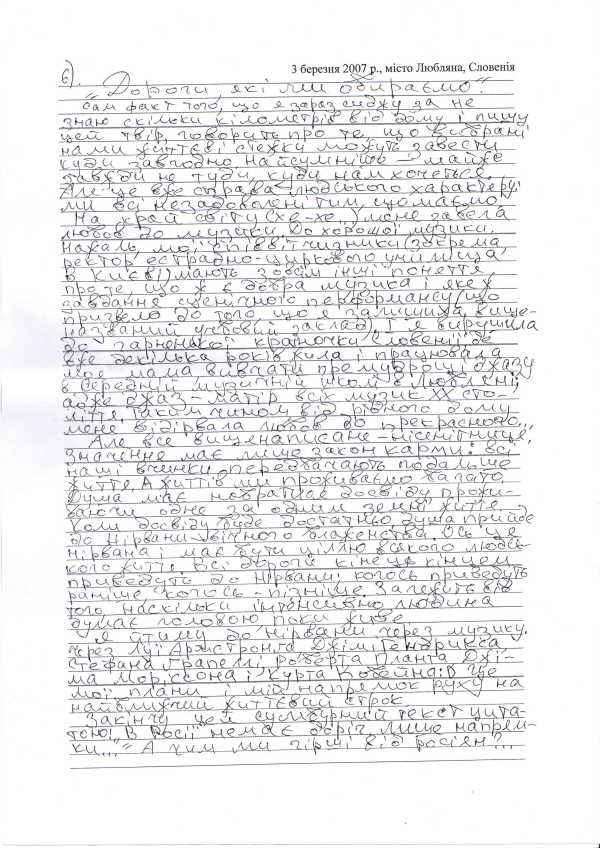 6).
3 березня 2007 р., місто Любляна, Словенія
„Дороги які ми обираємо”
Сам факт того, що я зараз сиджу за не
знаю скільки кілометрів від дому і пишу
цей твір, говорить про те, що вибрані
нами життєві стежки можуть завести
куди завгодно. Найсумніше – майже
завжди не туди, куди нам хочеться.
Але це вже справа людського характеру,
ми всі незадоволені тим, що маємо.
На край світу (хе-хе...) мене завела
любов до музики. До хорошої музики.
Нажаль мої співвітчизники (зокрема
ректор естрадно-циркового училища
в Києві) мають зовсім інші поняття
про те, що ж є добра музика і яке у
завдання сценічного перформансу (що
призвело до того, що я залишила вище-
названий учбовий заклад). І я вирушила
до гарненької країночки Словенії, де
вже декілька років жила і працювала
моя мама вивчати премудрощі джазу
в Середній музичній школі в Любляні;
адже джаз – матір всіх музик XX сто-
ліття. Таким чином від рідного дому
мене відірвала любов до прекрасного...
Але все вищенаписане – нісенітниця.
Значення має лише закон карми: всі
наші вчинки передбачають подальше
життя. А життів ми проживаємо багато.
Душа має набратися досвіду прожи-
ваючи одне за одним земні життя.
Коли досвіду буде достатньо, душа прийде
до Нірвани – вічного блаженства. Ось це
нірвана і має бути ціллю всякого людсь-
кого життя. Всі дороги кінець кінцем
приведуть до Нірвани; когось приведуть
раніше, когось – пізніше. Залежить від
того, наскільки інтенсивно людина
думає головою, поки живе.
Я йтиму до нірвани через музику.
Через Луї Армстронга, Джімі Гендрикса,
Стефана Грапеллі, Роберта Планта, Джі-
ма Моррісона і Курта Кобейна. :D Це
мої плани і мій напрямок руху на
найближчий житієвий строк.
Закінчу цей сумбурний текст цита-
тою: „В Росії немає доріг, лише напрям-
ки...” А чим ми гірші від росіян?...